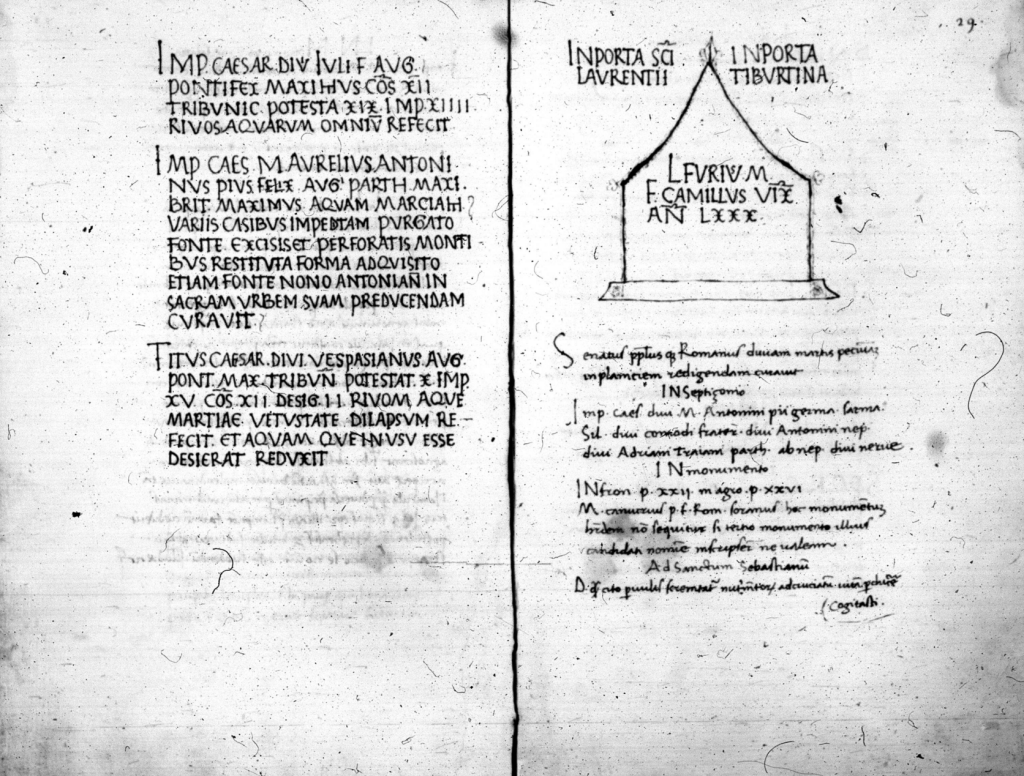 IMP. CAESAR. DIVI IVLI F. AVG.
PONTIFEX MAXIMVS COS XII
TRIBVNIC. POTESTA XIX. IMP. XIIII
RIVOS AQVARVM OMNIV REFECIT
IMP CAES. M. AVRELIVS. ANTONI.
NVS PIVS. FELIX AVG. PARTH. MAXI.
BRIT. MAXIMVS AQVAM MARCIAM
VARIIS CASIBVS IMPEDTAM PVRGATO
FONTE. EXCISIS ET PERFORATIS MONTI
BVS RESTITVTA FORMA ADQVISITO
ETIAM FONTE NONO ANTONIAN IN
SACRAM VRBEM SVAM PREDVCENDAM
CVRAVIT.
TITVS CAESAR. DIVI. VESPASIANVS. AVG.
PONT. MAX. TRIBVN POTESTAT. X. IMP.
XV. COS. XII DESIG. II. RIVOM, AQVE
MARTIAE. VETVSTATE DILAPSVM RE-
FECIT. ET AQVAM QVE IN VSV ESSE
DESIERAT REDVXIT
29.
IN PORTA SCI LAVRENTII
IN PORTA TIBVRTINA
L. FVRIVM.
F. CAMILLVS VIX.
AN LXXX.
Senatus pplus q Romanus
in planiciem redigendam curavit
IN Septizonio
Imp. Caes. divi M. Antonini pii germa. sarma.
Sil. divi comodi frater. divi Antonini nep.
divi Adriani traiani parth. abnep. divi nerve.
IN monumento
IN fron. p. XXII. in agro. p. XXVI
M. p. f. Rom. hoc monumentu
no sequitur si monumento illius
candidati ne valeam.
Ad Sanctum Sebastianu
D.
Cogitasti.